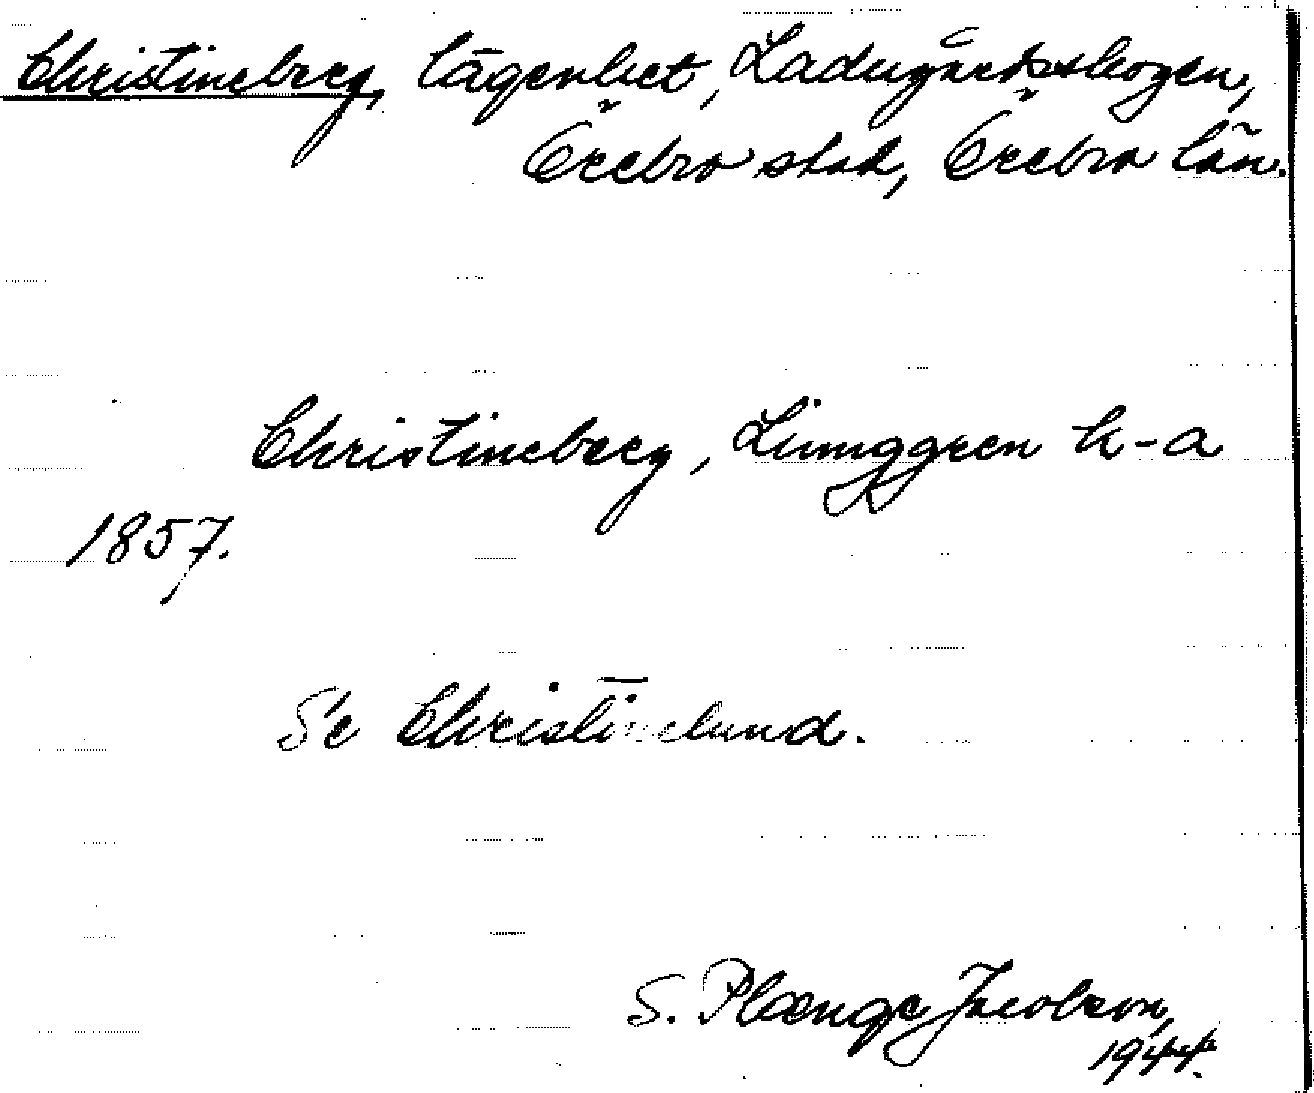 Christineberg, lägenhet, Ladugårdsskogen,
Örebro stad, Örebro län.
Christineberg, Ljunggren h-a
1857.
Se Christinelund.
S. Plænge Jacobson,
1944.